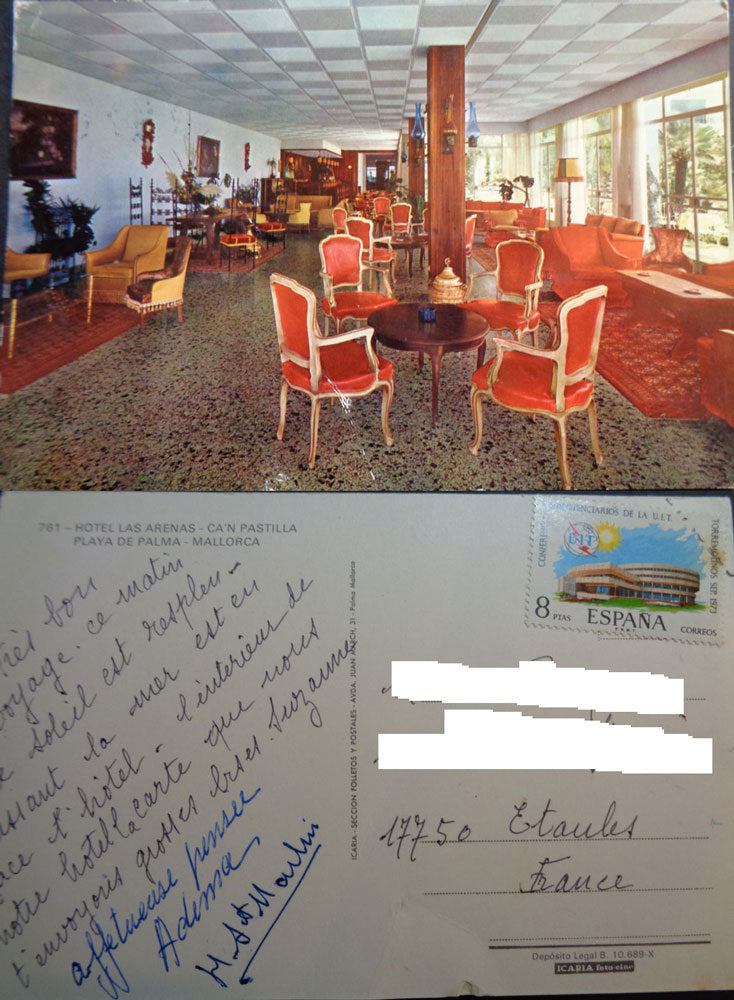 761 – HOTEL LAS ARENAS - CA'N PASTILLA
PLAYA DE PALMA - MALLORCA
très bon
voyage. ce matin
le soleil est resplen-
issant la mer est en
face l'hôtel. l'intérieur de
notre hotel la carte que nous
t'envoyons grosses bises. Suzanne
affetueuse pensée
Adima
ICARIA - SECCION FOLLETOS Y POSTALES - AVDA. JUAN MARCH, 31 - Palma Mallorca
PLENIPOTENCIARIOS DE LA U.I.T.
TORREMOLINOS SEP. 1973
UIT
8 PTAS ESPAÑA
CORREOS
17750 Etaules
France
Depósito Legal B. 10.689-X
ICARIA foto-cine